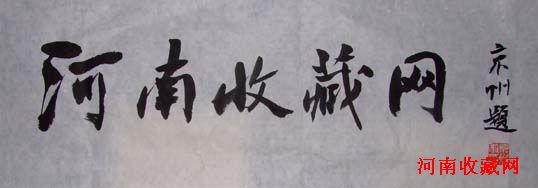 河南收藏网
京州题
河南收藏网